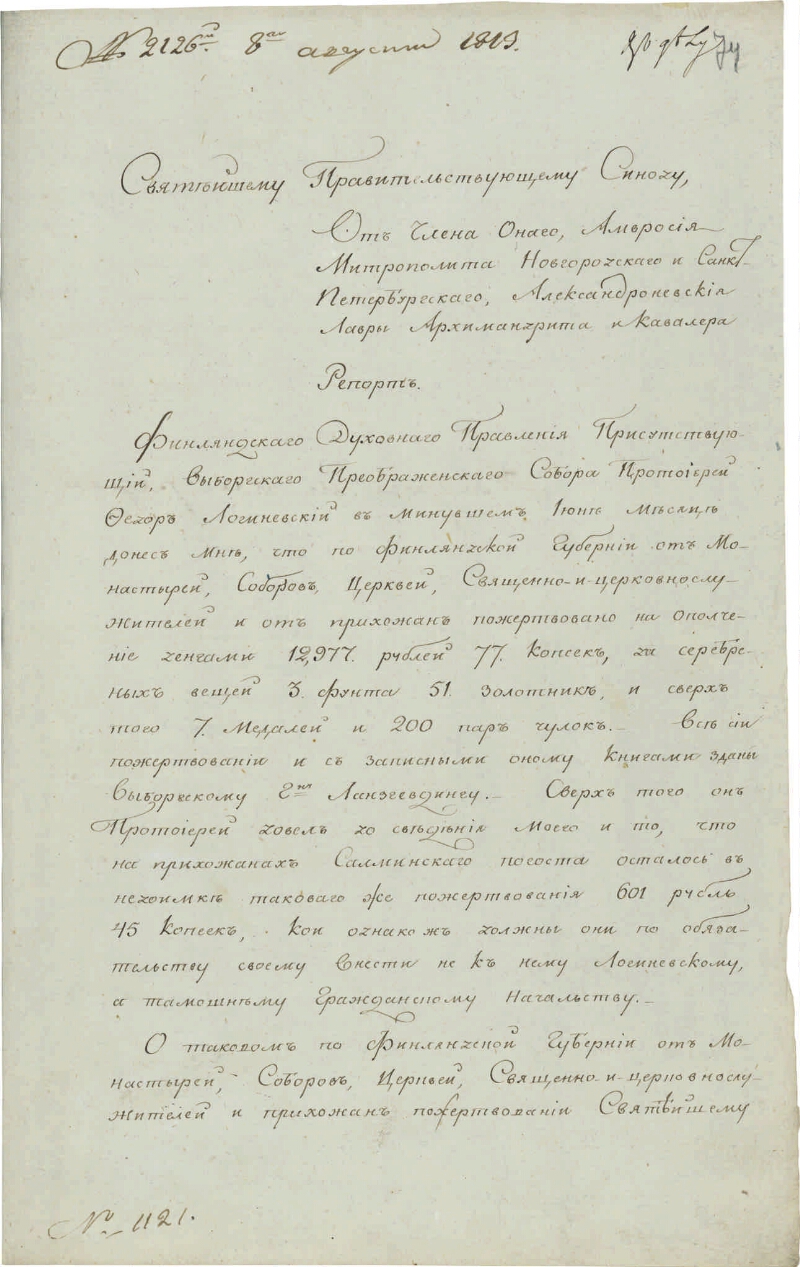 № 2126й 8го августа 1813.
Святѣйшему Правительствующему Синоду,
Отъ Члена Онаго, Амвросія
Митрополита Новгородскаго и Санкт-
Петербургскаго, Александроневскія
Лавры Архимандрита и Кавалера
Репортъ.
Финляндскаго Духовнаго Правленія Присутствую-
щій, Выборгскаго Преображенскаго Собора Протоіерей
Ѳедоръ Логиневскій въ минувшемъ Іюнѣ мѣсяцѣ
донесъ мнѣ, что по Финляндской Губерніи отъ Мо-
настырей, Соборовъ, Церквей, Священно-и-церковнослу-
жителей и отъ прихожанъ пожертвовано на Ополче-
ніе деньгами 12,977. рублей 77. копѣекъ, да серебре-
ныхъ вещей 3. фунта 51. золотникъ, и сверхъ
того 7. Медалей и 200 паръ чулокъ. – Всѣ сіи
пожертвованіи и съ записными оному книгами зданы
Выборгскому
Сверхъ того онъ
Протоіерей довелъ до свѣдѣнія Моего и то, что
на прихожанахъ Салминскаго погоста осталось въ
недоимкѣ таковаго же пожертвованія 601 рубль
45 копеекъ, кои однако жъ должны они по обяза-
тельству своему внести не къ нему Логиневскому,
а тамошнѣму Гражданскому Начальству. –
О таковомъ по Финляндской Губерніи отъ Мо-
настырей, Соборовъ, Церквей, Священно-и-церковнослу-
жителей и прихожанъ пожертвованіи Святѣйшему
№ 1121.